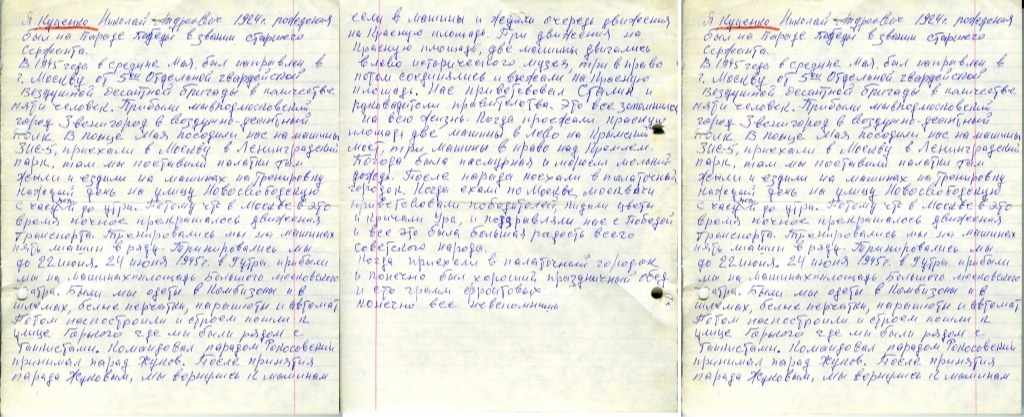 Я Куценко Николай Андреевич 1924г. рождения
был на Параде Победы в звании старшего
сержанта.
В 1945 года в средине Мая, был направлен в
г. Москву, от 5ой Отдельной гвардейской
Воздушной десантной бригады в количестве
пяти человек. Прибыли мы в подмосковский
город Звенигород в воздушно-десантный
полк. В конце Мая посодили нас на машины
ЗИС-5, приехали в Москву в Ленинградский
парк, там мы поставили палатки там
жыли и ездили на машинах на тренировку
каждый день на улицу Новослободскую
с часу ночи до утра. Потому что в Москве в это
время ночное прекращалось движения
транспорта. Тренировались мы на машинах
пять машин в ряду. Тринировались мы
до 22 июня. 24 июня 1945г. в 9 утра прибыли
мы на машинах площадь Большого московского
театра. Были мы одеты в Комбизоны и в
шлемах, белые перчатки, парашюты и автомат
Потом нас построили и строем пошли к
улице Горького где мы были рядом с
танкистами. Командовал парадом Рокосовский
принимал парад Жуков. После принятия
парада Жуковым, мы вернулись к машинам
сели в машины и ждали очередь движения
на Красную площадь. При движения на
Красную площадь, две машины двигались
влево исторического музея, три вправо
потом соединялись и въехали на Красную
площадь. Нас приветствовал Сталин и
руководители правительства. Это все запомнилось
на всю жизнь. Когда проехали, красную
площадь две машины в лево на Крымский
мост, три машины в право над Кремлем.
Погода была пасмурная и моросил мелкий
дождь. После парада поехали в палаточный
городок. Когда ехали по Москве, москвичи
приветствовали победителей, кидали цветы
и кричали Ура, и поздравляли нас с Победой
и все это была большая радость всего
советского народа.
Когда приехали в палаточный городок
и конечно был хороший праздничный обед
и сто грамм фронтовых
конечно все невспомниш
Я Куценко Николай Андреевич 1924г. рождения
был на Параде Победы в звании старшего
сержанта.
В 1945 года в средине Мая, был направлен в
г. Москву, от 5ой Отдельной гвардейской
Воздушной десантной бригады в количестве
пяти человек. Прибыли мы в подмосковский
город Звенигород в воздушно-десантный
полк. В конце Мая посодили нас на машины
ЗИС-5, приехали в Москву в Ленинградский
парк, там мы поставили палатки там
жыли и ездили на машинах на тренировку
каждый день на улицу Новослободскую
с часу ночи до утра. Потому что в Москве в это
время ночное прекращалось движения
транспорта. Тренировались мы на машинах
пять машин в ряду. Тринировались мы
до 22 июня. 24 июня 1945г. в 9 утра прибыли
мы на машинах площадь Большого московского
театра. Были мы одеты в Комбизоны и в
шлемах, белые перчатки, парашюты и автомат
Потом нас построили и строем пошли к
улице Горького где мы были рядом с
танкистами. Командовал парадом Рокосовский
принимал парад Жуков. После принятия
парада Жуковым, мы вернулись к машинам